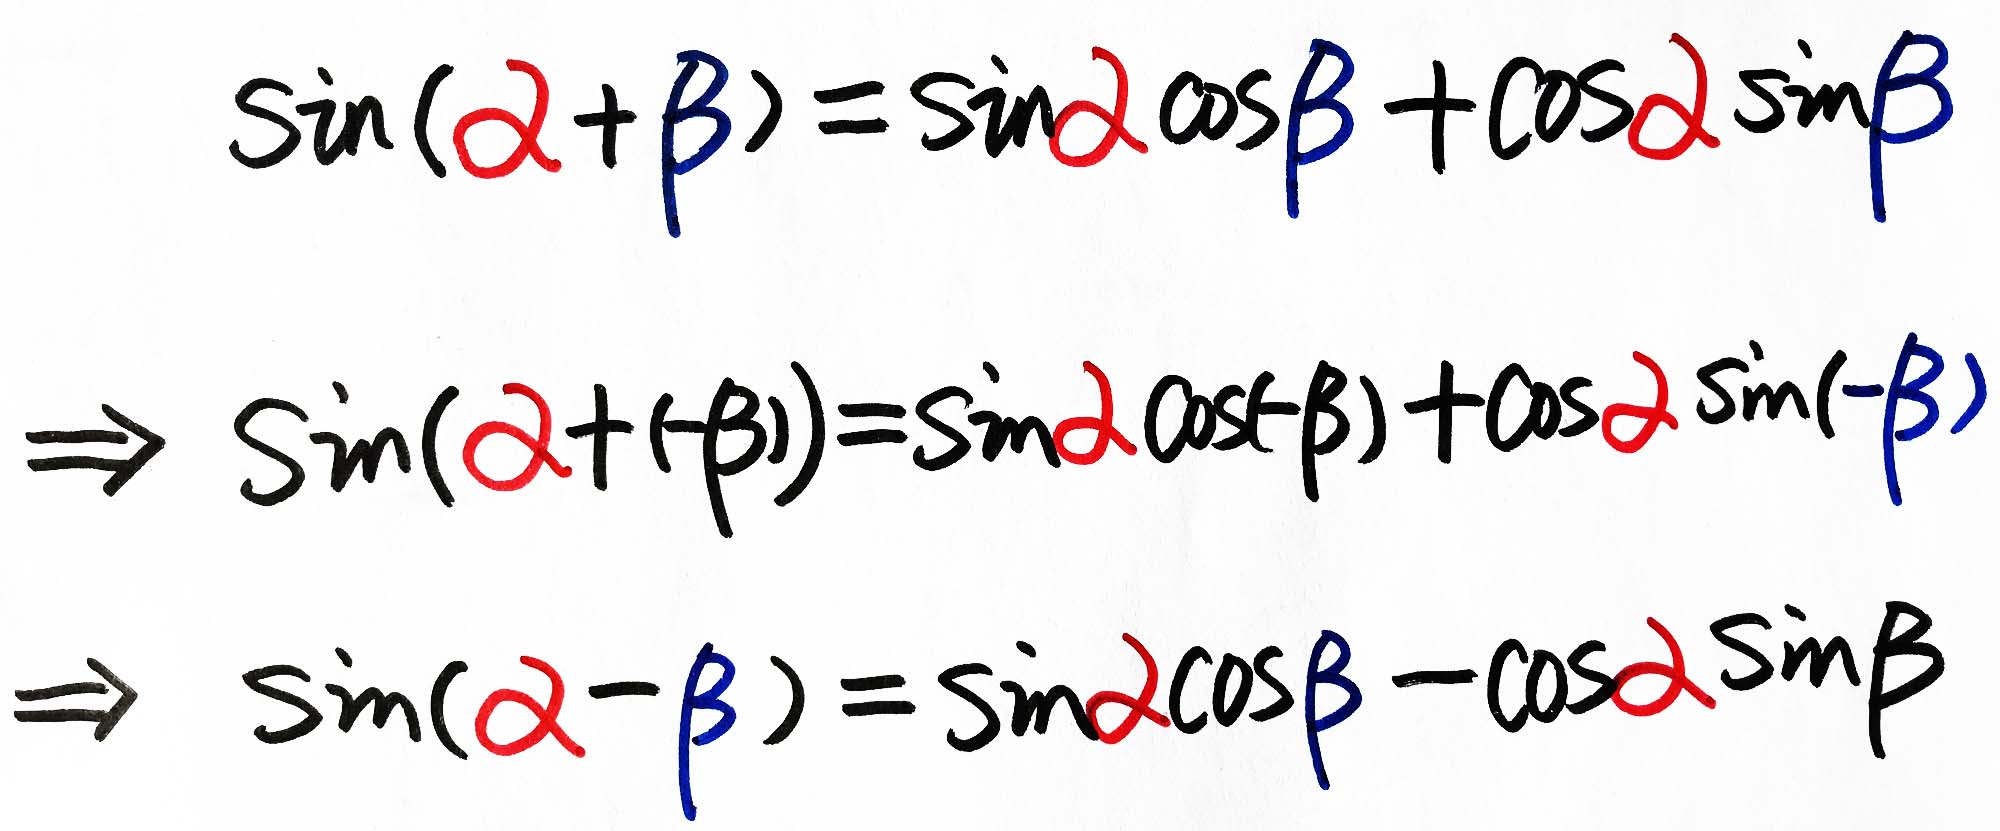 sin(α+β)=sinα cosβ+cosα sinβ
⇒ sin(α+(-β))=sinα cos(-β)+cosα sin(-β)
⇒ sin(α-β)=sinα cosβ-cosα sinβ